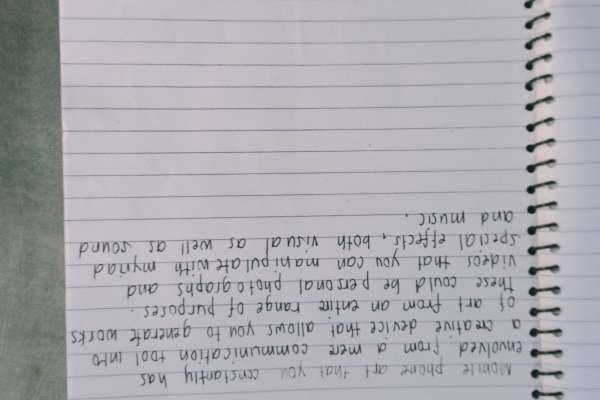 Mobile phone art that you constantly has
envolved from a mere communication tool into
a creative device that allows you to generate works
of art from an entire range of purposes.
These could be personal photographs and
videos that you can manipulate with myriad
special effects, both visual as well as sound
and music.